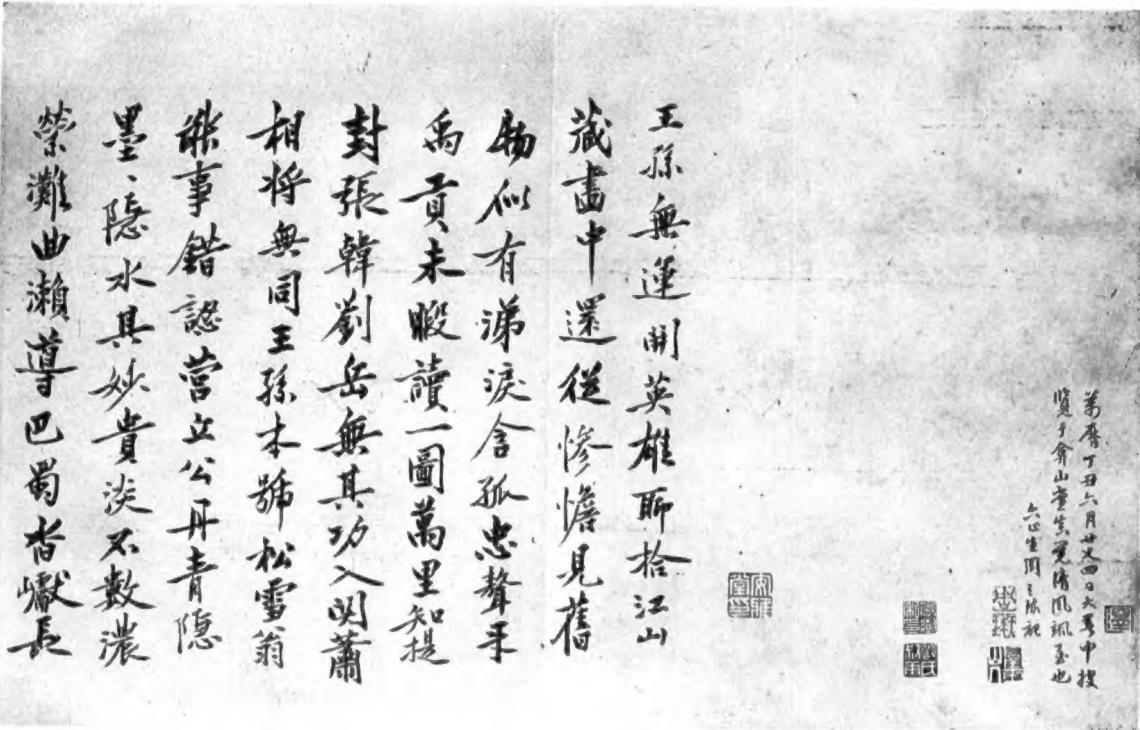 萬曆丁丑六月廿又四日大暑中披
覽于弇山堂真覺清風颯至也
六止生周天球記
王孫無運開英雄聊拾江山
藏畫中還從慘憺見舊
物似有涕淚含孤忠聱牙
禹貢未暇讀一圖萬里知提
封張韓劉岳無其功入関蕭
相将無同王孫本號松雪翁
能事錯認營丘公丹青隱
墨、隱水其妙貴淡不數濃
縈灘曲瀨導巴蜀沓巘長